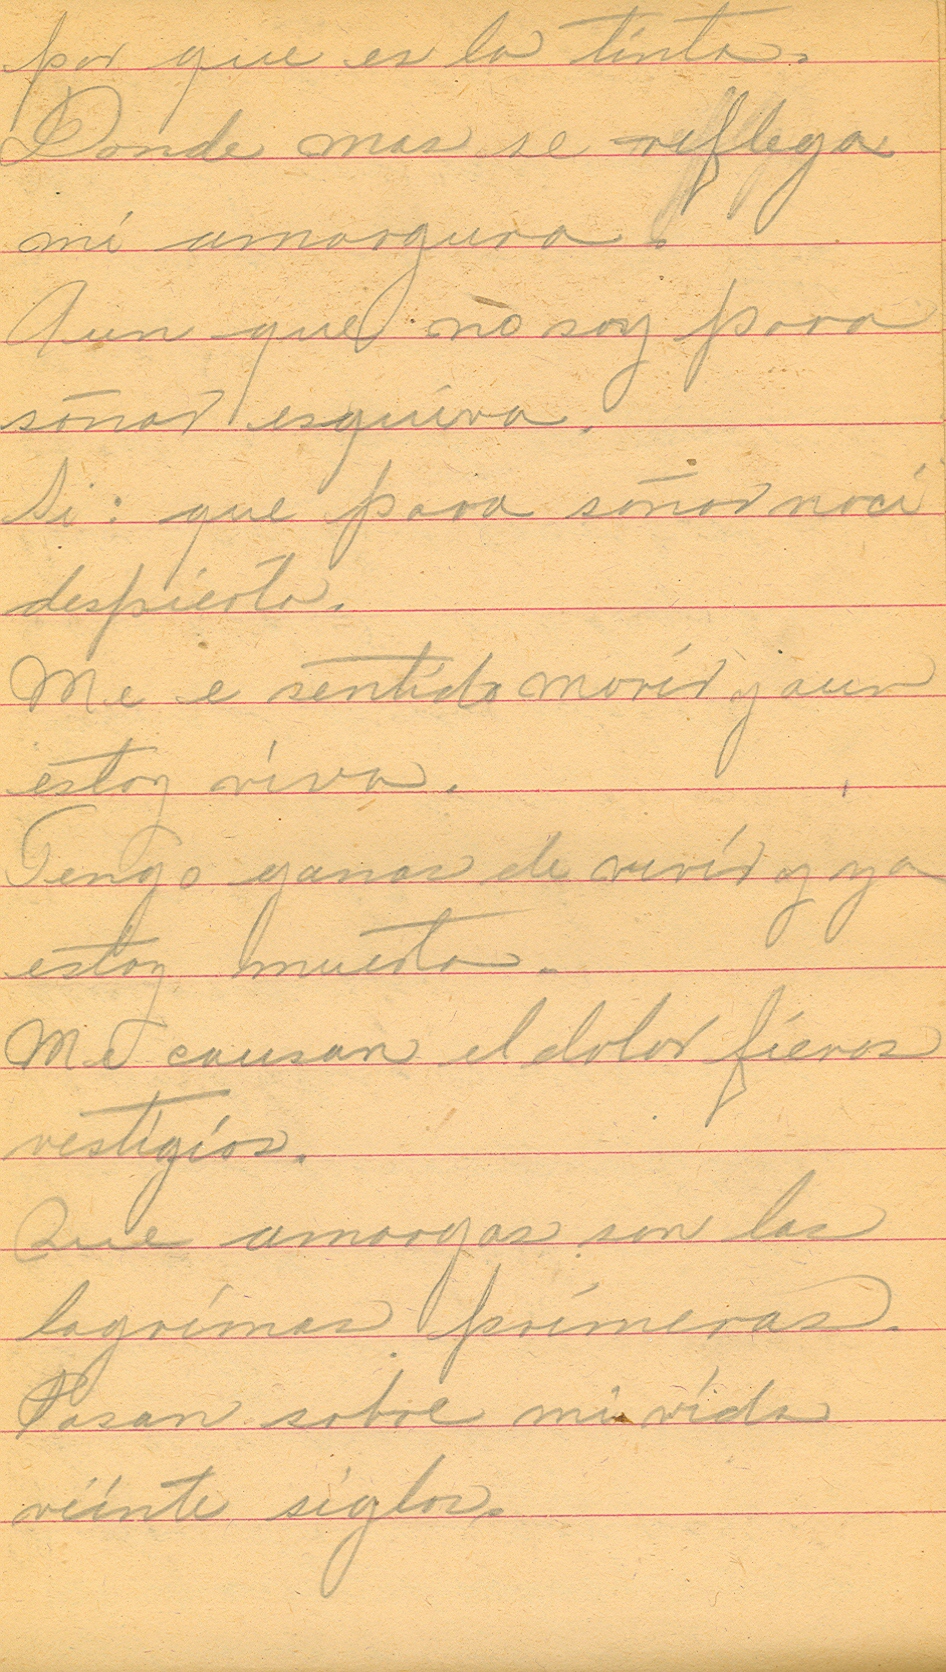 por que es la tinta.
Donde mas se reflega
mi amargura.
Aun que no soy para
sōnar esquiva.
Si: que para sōnar naci
despierta.
Me e sentido morir y aun
estoy viva.
Tengo ganas de vivir y ya
estoy muerta.
Me causan el dolor fieros
vestigios.
Que amargas son las
lagrimas primeras.
Pasan sobre mi vida
veinte siglos.